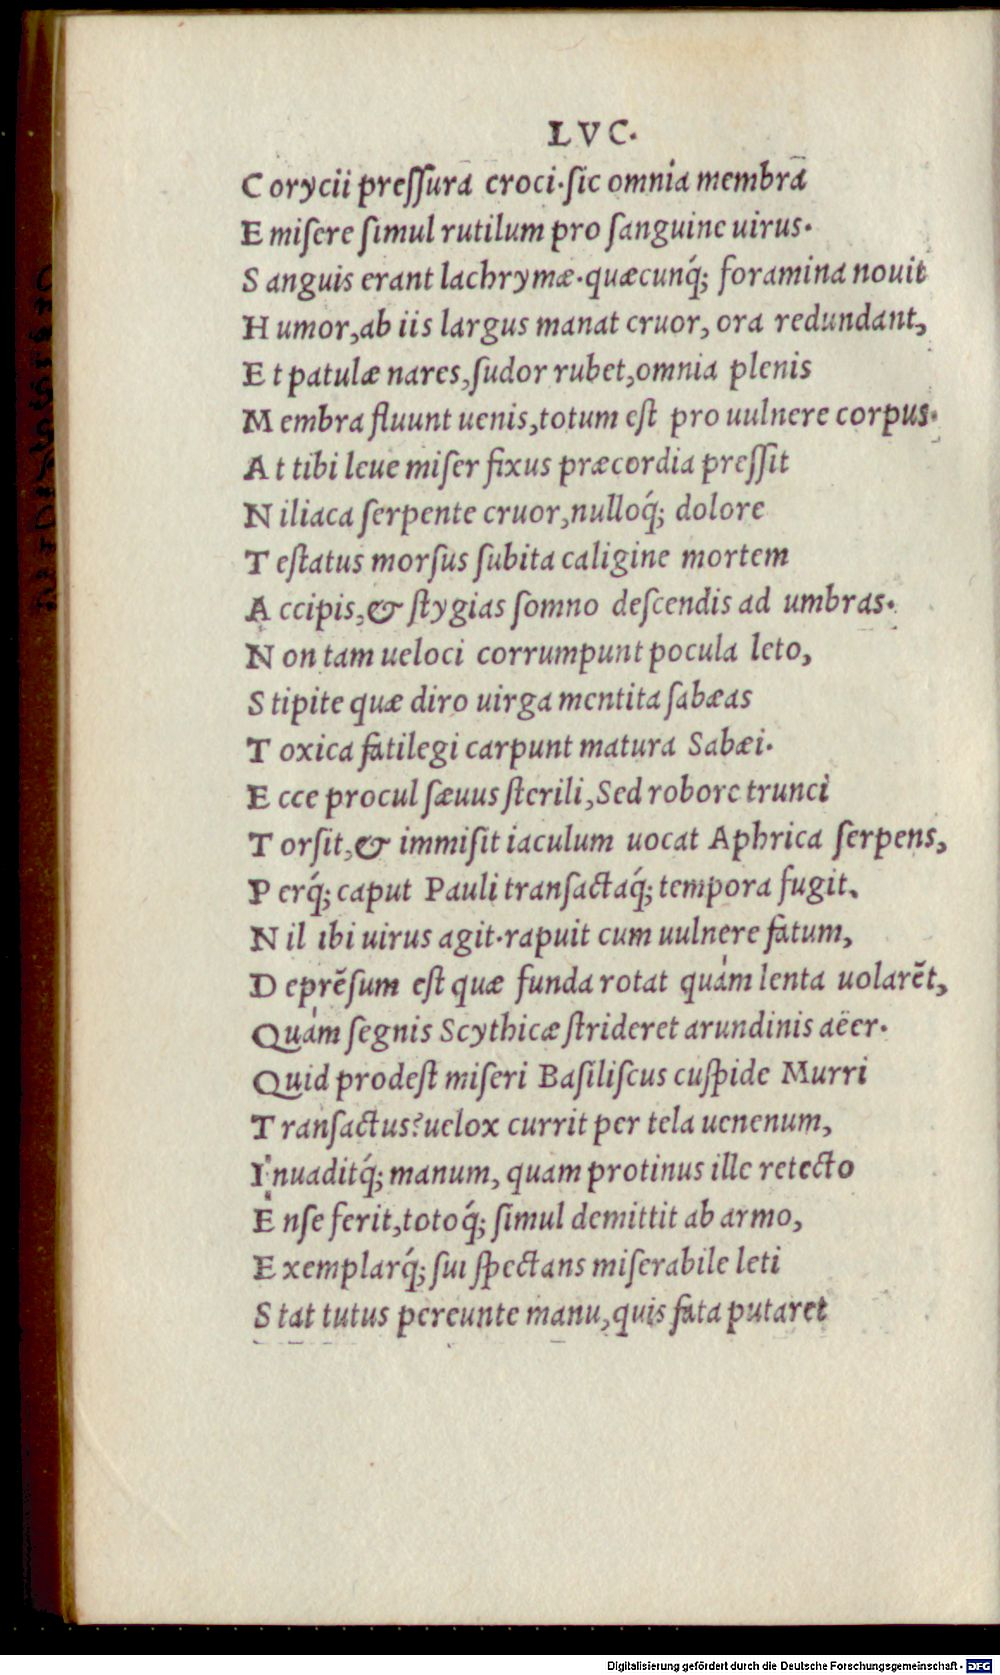 LVC.
Corycii preſſura croci.ſic omnia membra
Emiſere ſimul rutilum pro ſanguine uirus.
Sanguis erant lachrymæ.quæcunq́; foramina nouit
Humor,ab iis largus manat cruor, ora redundant,
Et patulæ nares,ſudor rubet,omnia plenis
Membra fluunt uenis,totum eſt pro uulnere corpus.
At tibi leue miſer fixus præcordia preſſit
Niliaca ſerpente cruor,nulloq́; dolore
Teſtatus morſus ſubita caligine mortem
Accipis,& ſtygias ſomno deſcendis ad umbras.
Non tam ueloci corrumpunt pocula leto,
Stipite quæ diro uirga mentita ſabæas
Toxica fatilegi carpunt matura Sabæi.
Ecce procul ſæuus ſterili,Sed robore trunci
Torſit,& immiſit iaculum uocat Aphrica ſerpens,
Perq́; caput Pauli tranſactaq́; tempora fugit.
Nil ibi uirus agit.rapuit cum uulnere fatum,
Deprẽſum eſt quæ funda rotat quàm lenta uolarẽt,
Quàm ſegnis Scythicæ ſtrideret arundinis aëer.
Quid prodeſt miſeri Baſiliſcus cuſpide Murri
Tranſactus?uelox currit per tela uenenum,
Inuaditq́; manum, quam protinus ille retecto
Enſe ferit,totoq́; ſimul demittit ab armo,
Exemplarq́; ſui ſpectans miſerabile leti
Stat tutus pereunte manu,quis fata putaret
Digitalisierung gefördert durch die Deutsche Forschungsgemeinschaft - DFG